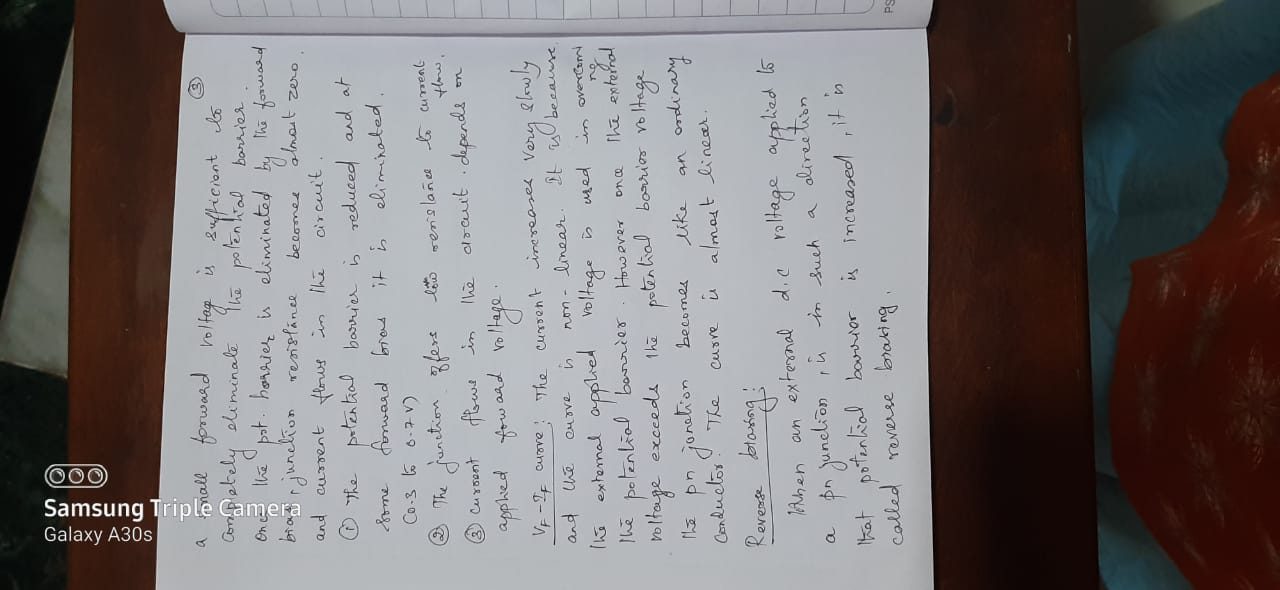 ③
a small forward voltage is sufficient to
completely eliminate the potential barrier.
once the pot. barrier is eliminated by the forward
bias, junction resistance becomes almost zero.
and current flows in the circuit.
① The potential barrier is reduced and at
some forward bias it is eliminated.
(0.3 to 0.7 V)
② The junction offers low resistance to current flow.
③ current flows in the circuit. depends on
applied foward voltage.
VF-IF curve: The current increases very slowly
and the curve is non-linear. It is because
the external applied voltage is used in overcoming
the potential barrier. However once the external
voltage exceeds the potential barrier voltage
the pn junction becomes like an ordinary
conductor. The curve is almost linear.
Reverse biasing:
When an external d.c voltage applied to
a pn junction, is in such a direction
that potential barrier is increased, it is
called reverse biasing.
PS
Samsung Triple Camera
Galaxy A30s